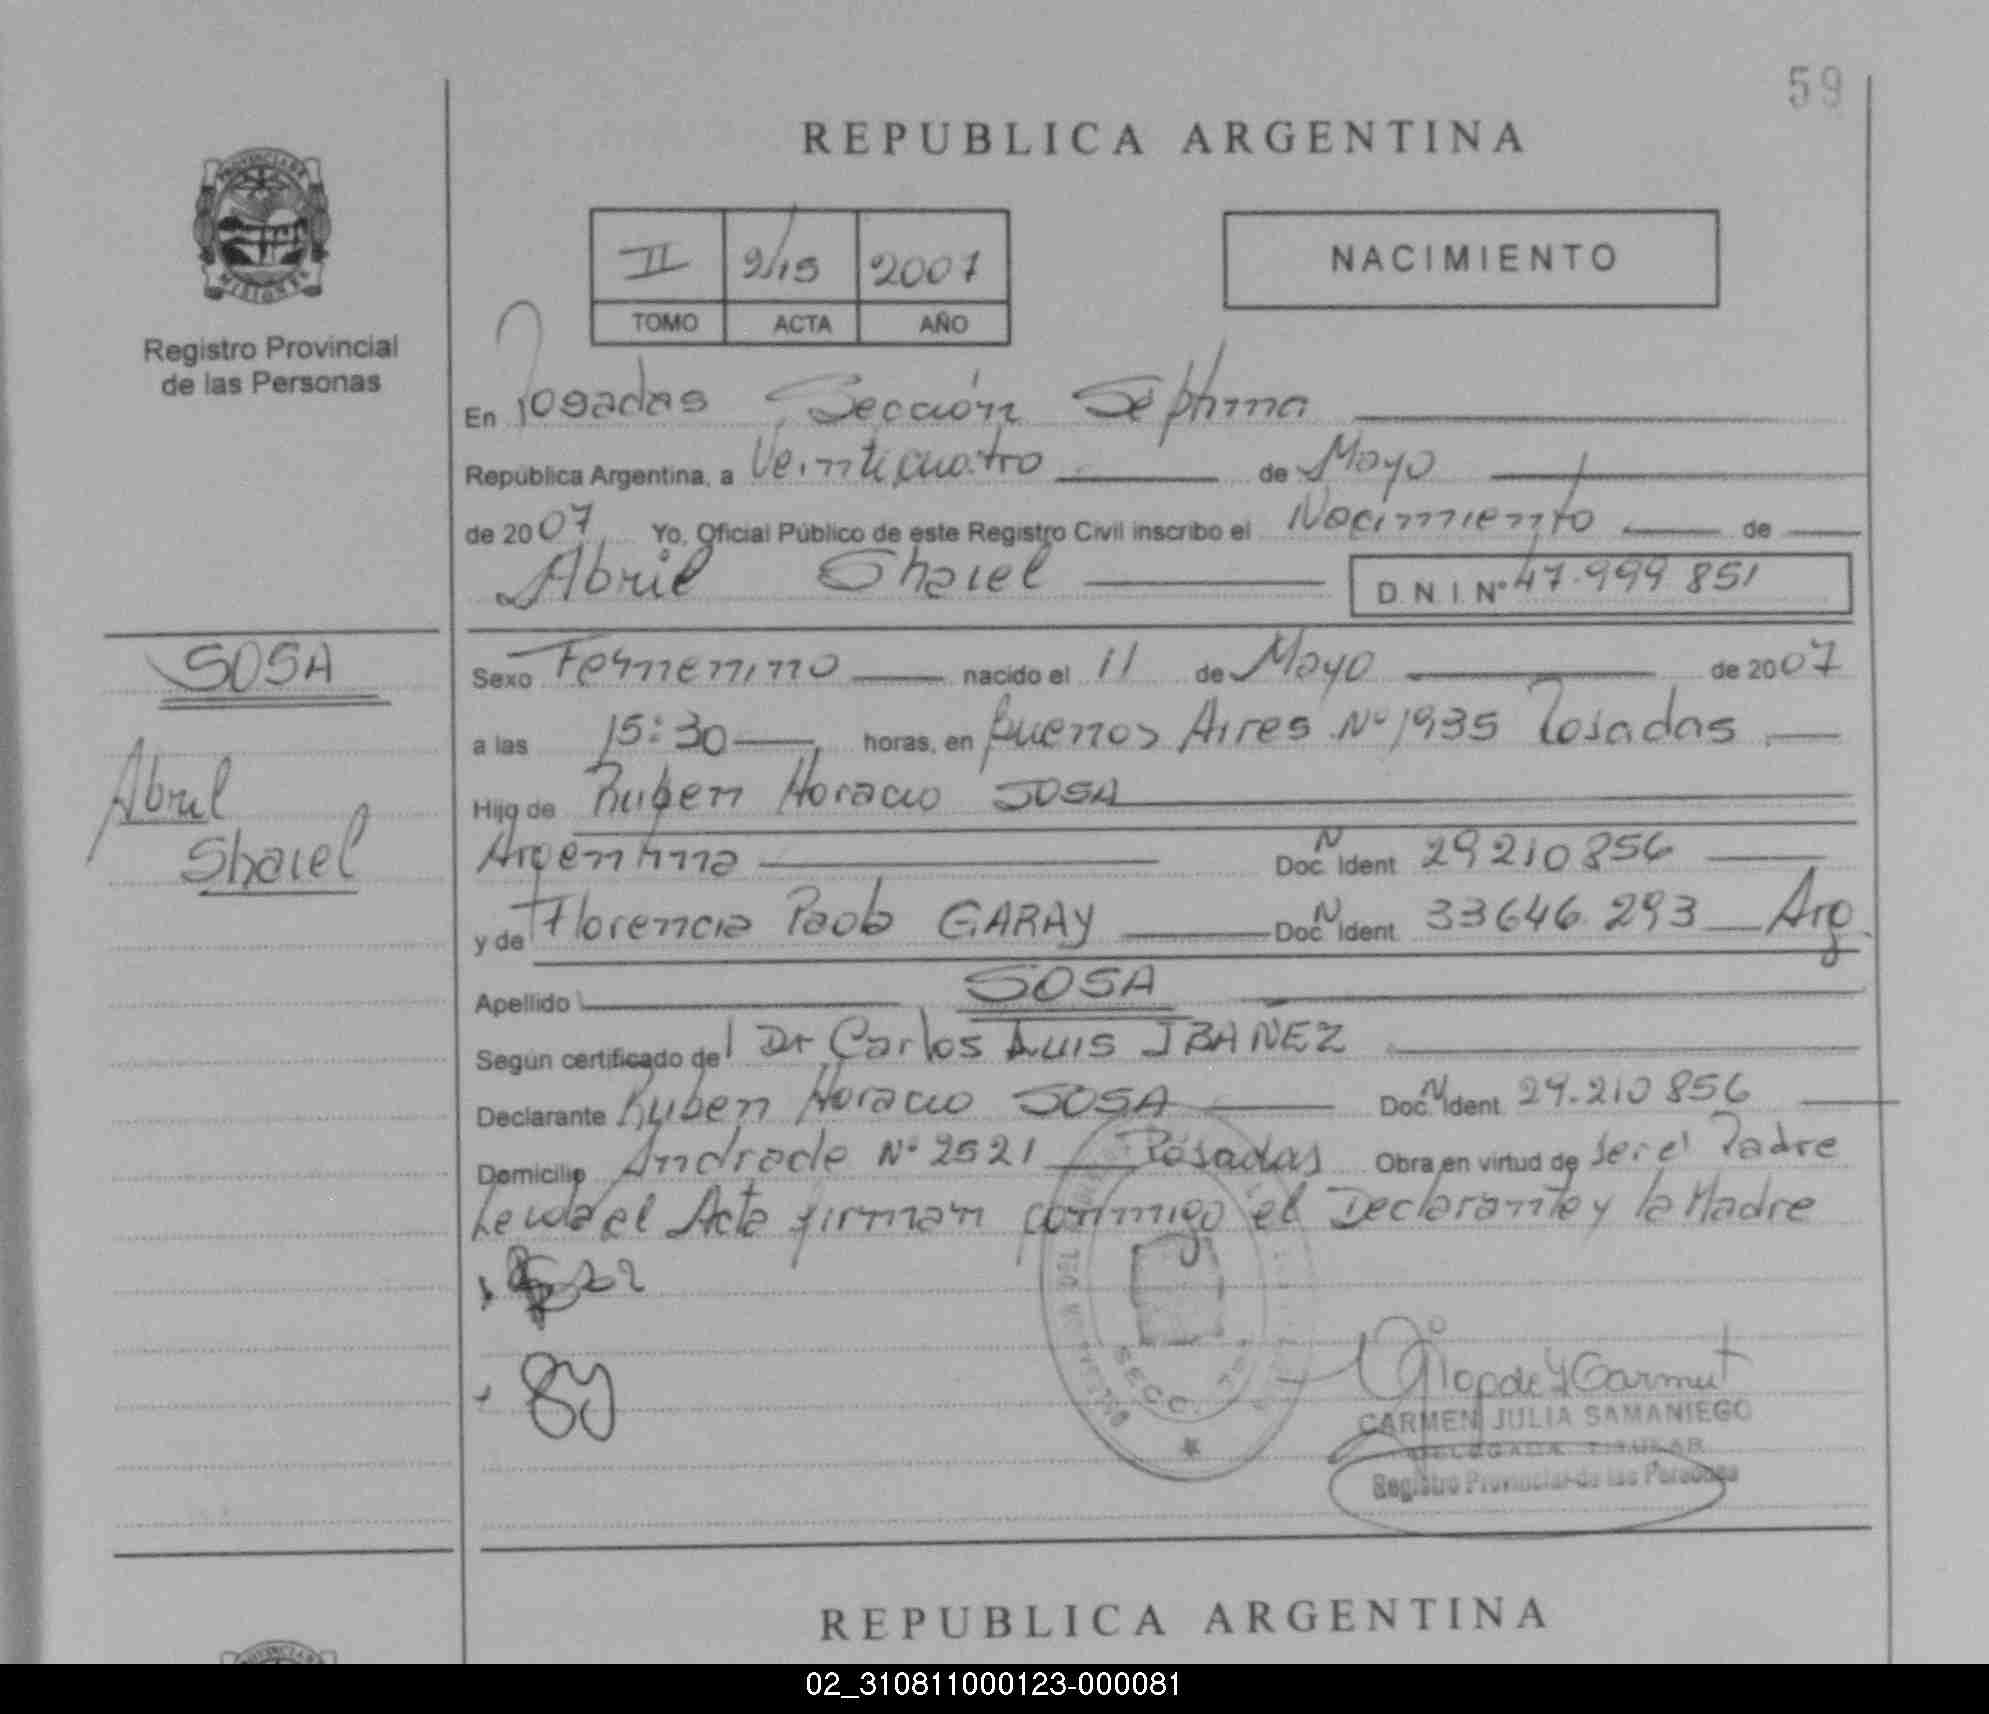 59
REPUBLICA ARGENTINA
PROVINCIA DE
MISIONES
II 2007
TOMO ACTA AÑO
NACIMIENTO
Registro Provincial
de las Personas
En Posadas Sección Séptima
República Argentina, a Veinticuatro de Mayo
de 2007 Yo, Oficial Público de este Registro Civil inscribo el Nacimiento de
Abril Shaiel D.N.I. Nº 47.999.851
SOSA
Abril
Shaiel
Sexo Femenino nacido el 11 de Mayo de 2007
a las 15:30 horas, en Buenos Aires Nº 1935 Posadas
Hijo de Ruben Horacio SOSA
Argentina Doc. N Ident 29210856
y de Florencia Paola GARAY Doc. N Ident 33646.293 Arg
Apellido SOSA
Según certificado del Dr Carlos Luis IBAÑEZ
Declarante Ruben Horacio SOSA Doc. N Ident. 29.210856
Domicilio Andrade Nº 2521 Posadas Obra en virtud de ser el Padre
Leida el Acta firman conmigo el Declarante y la Madre
SECC.
CARMEN JULIA SAMANIEGO
DELEGADA TITULAR
Registro Provincial de las Personas
REPUBLICA ARGENTINA
02_310811000123-000081